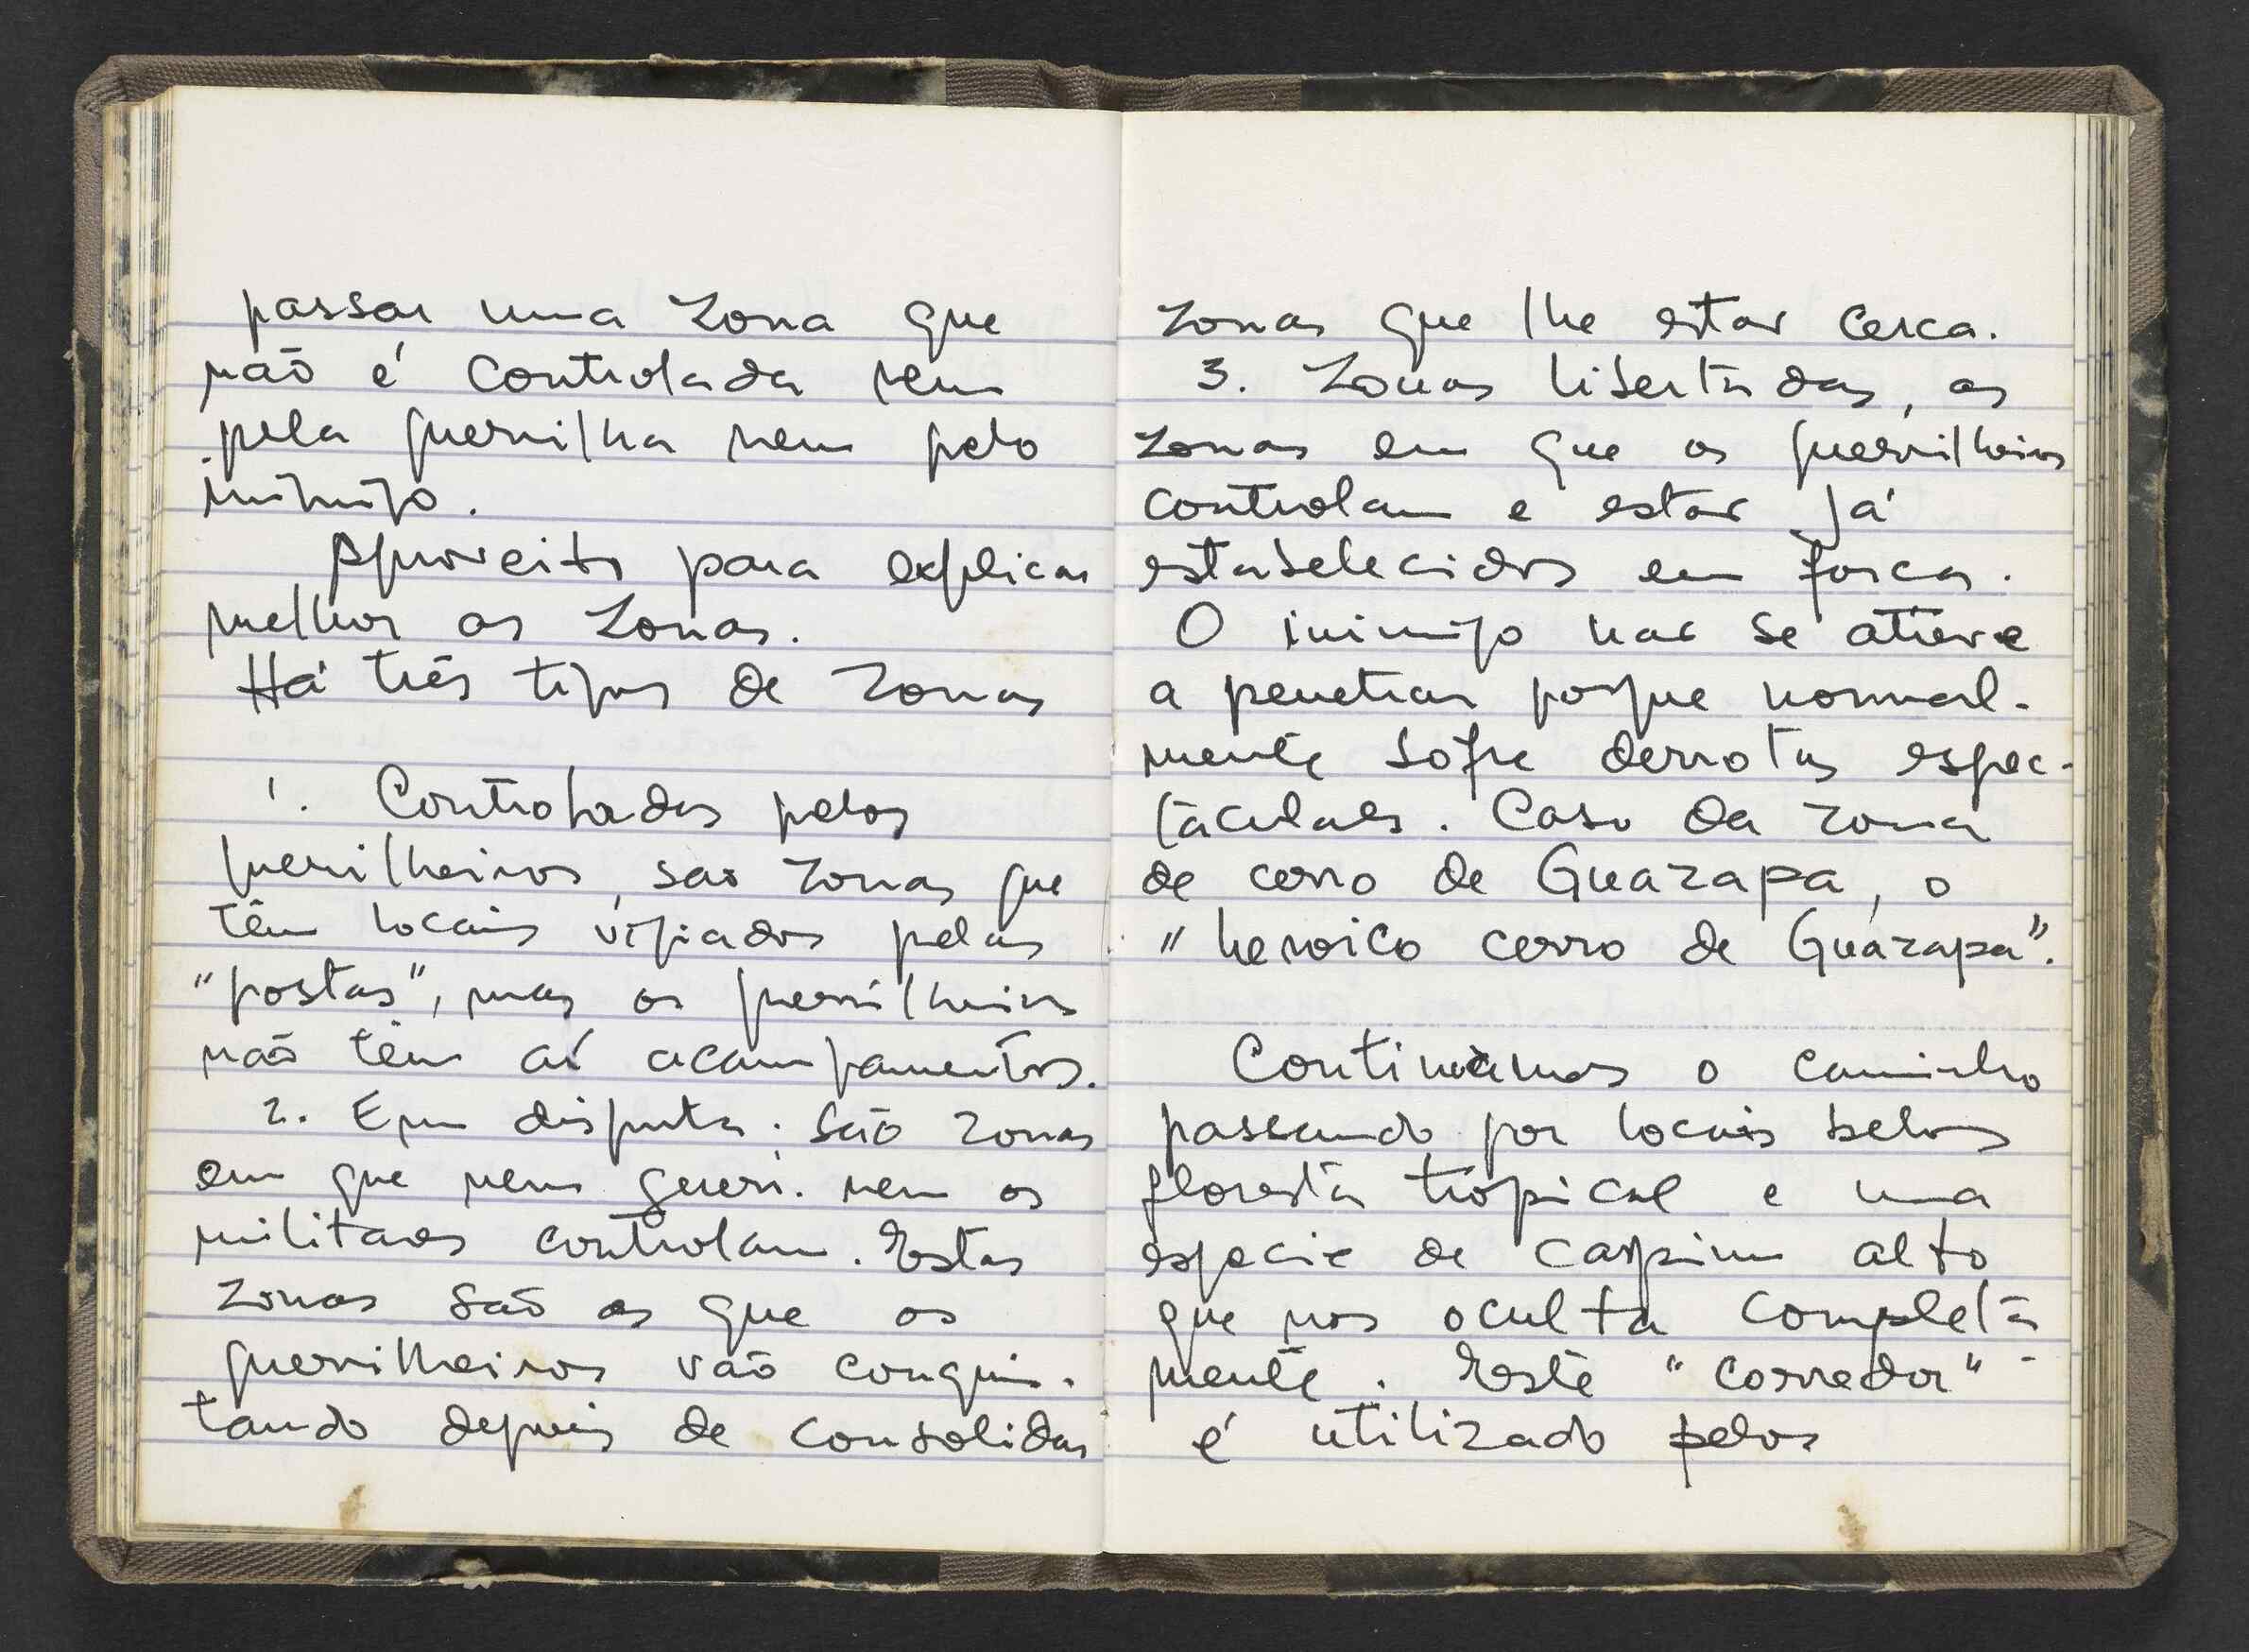 passar uma zona que
não é controlada nem
pela guerrilha nem pelo
inimigo.
Aproveito para explicar
melhor as zonas.
Há três tipos de zonas
1. Controladas pelos
guerilheiros, são zonas que
têm locais vigiados pelas
"postas", mas os guerrilheiros
não têm aí acampamentos.
2. Em disputa. São zonas
em que nem guerri. nem os
militares controlam. Estas
zonas são as que os
guerrilheiros vão conquis-
tando depois de consolidar
zonas que lhe estão cerca.
3. Zonas libertadas, as
zonas em que os guerrilheiros
controlam e estão já
estabelecidos em forças.
O inimigo não se atreve
a penetrar porque normal-
mente sofre derrotas espec-
taculares. Caso da zona
de cerro de Guazapa, o
"heroico cerro de Guazapa".
Continuámos o caminho
passando por locais belos
floresta tropical e uma
especie de carpim alto
que nos oculta completa-
mente. Este "corredor"
é utilizado pelos